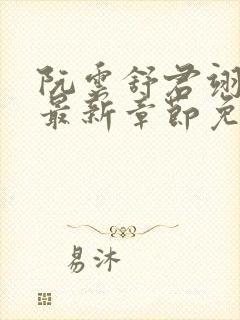 阮云舒君翊
最新章节免
易沐